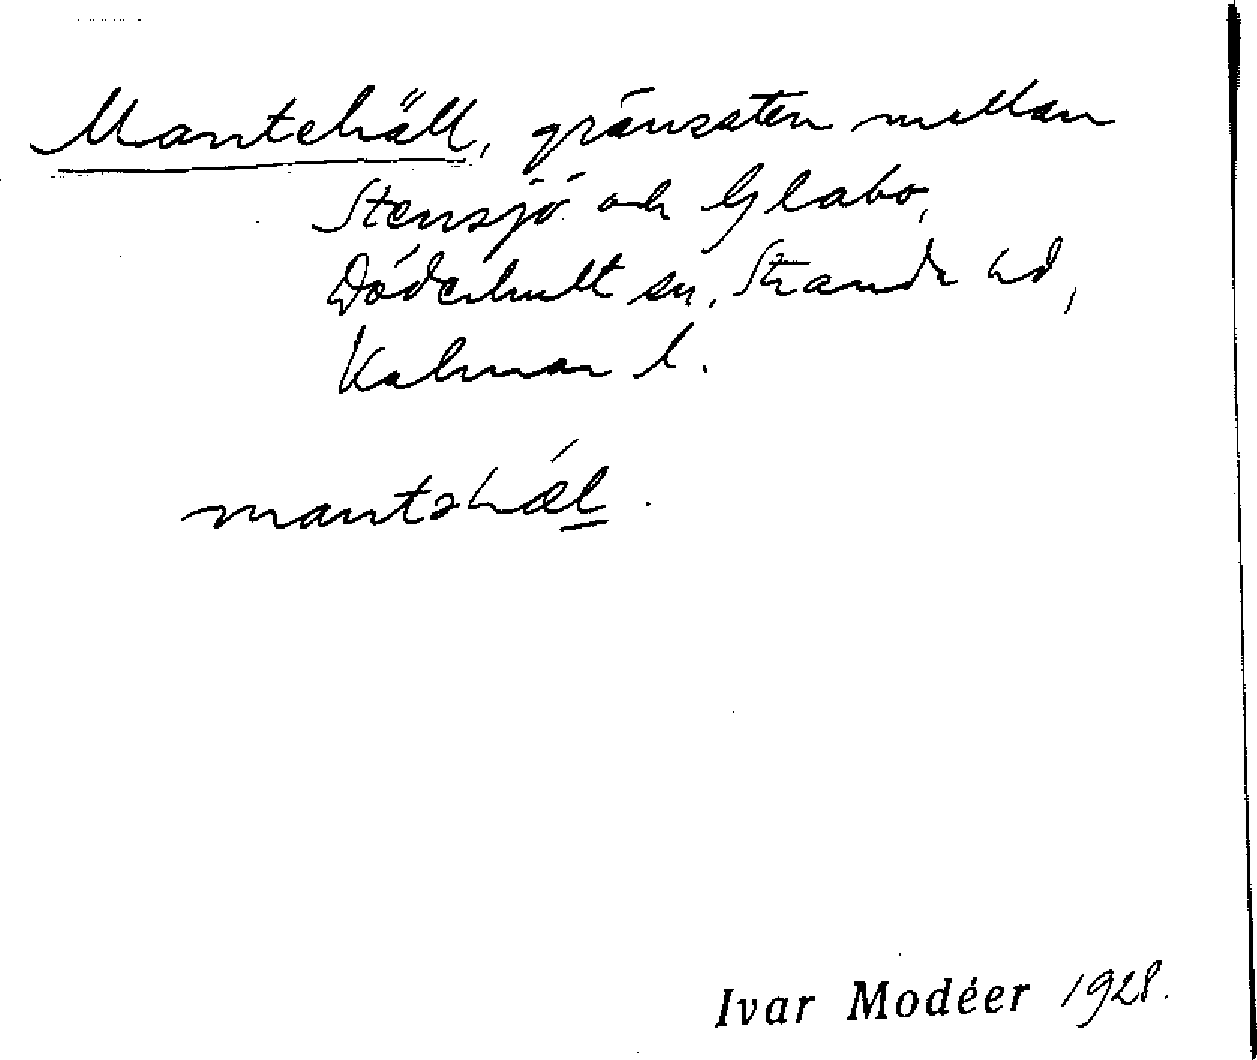 Mantehäll, gränssten mellan
Stensjö och Glabo,
Döderhult sn, Strands hd,
Kalmar l.
mantəhǽl.
Ivar Modéer 1928.